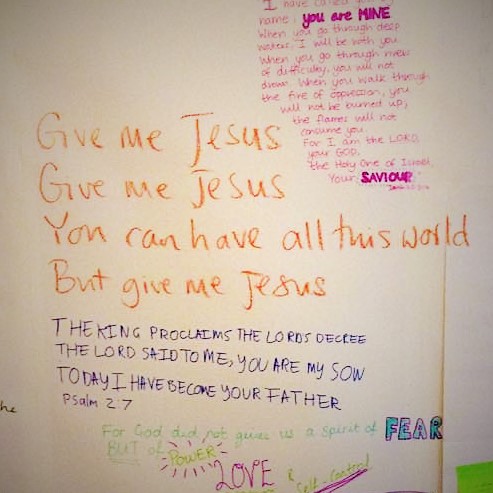 I have called you by
name; you are MINE
When you go through deep
waters, I will be with you
When you go through rivers
of difficulty, you will not
drown. When you walk through
the fire of oppression, you
will not be burned up;
the flames will not
consume you.
For I am the LORD,
your GOD,
the Holy One of Israel,
Your SAVIOUR"
Give me Jesus
Give me Jesus
You can have all this world
But give me Jesus
THE KING PROCLAIMS THE LORDS DECREE
THE LORD SAID TO ME, YOU ARE MY SON
TODAY I HAVE BECOME YOUR FATHER
Psalm 2:7
the
For God did not give us a spirit of FEAR
BUT of POWER
LOVE & Self-Control